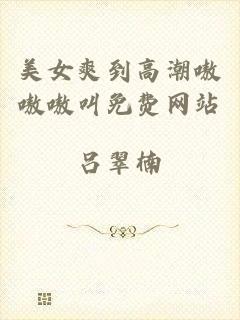 美女爽到高潮嗷
嗷嗷叫免费网站
吕翠楠